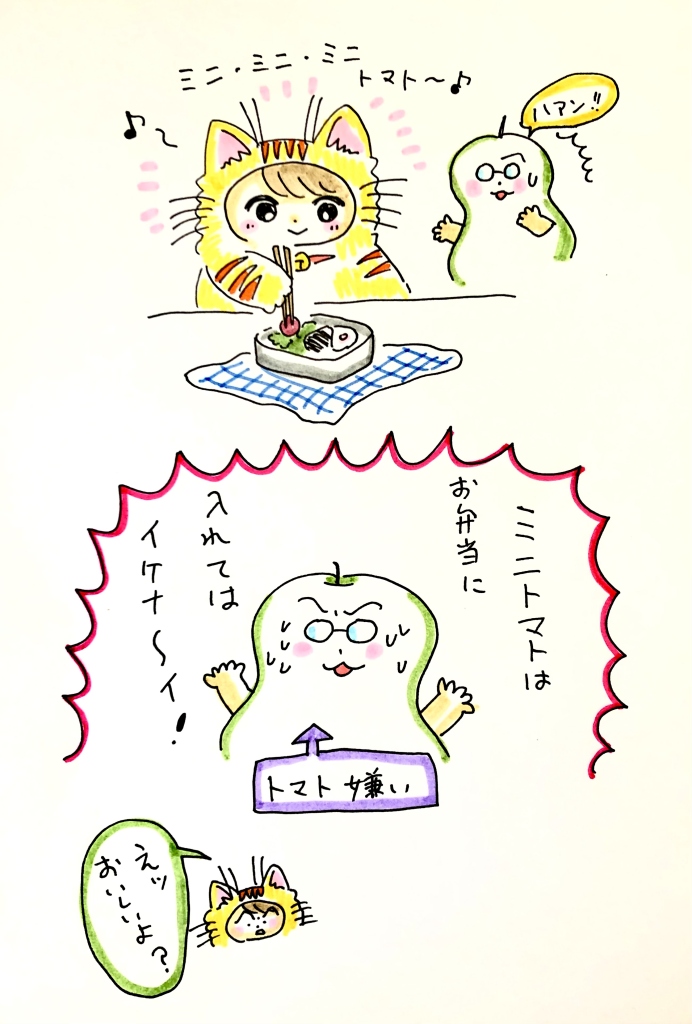 ミニ・ミニ・ミニ
トマト〜♪
ハアン!!
ミニトマトは
お弁当に
入れては
イケナ〜イ!
トマト嫌い
えッ
おいしいよ?